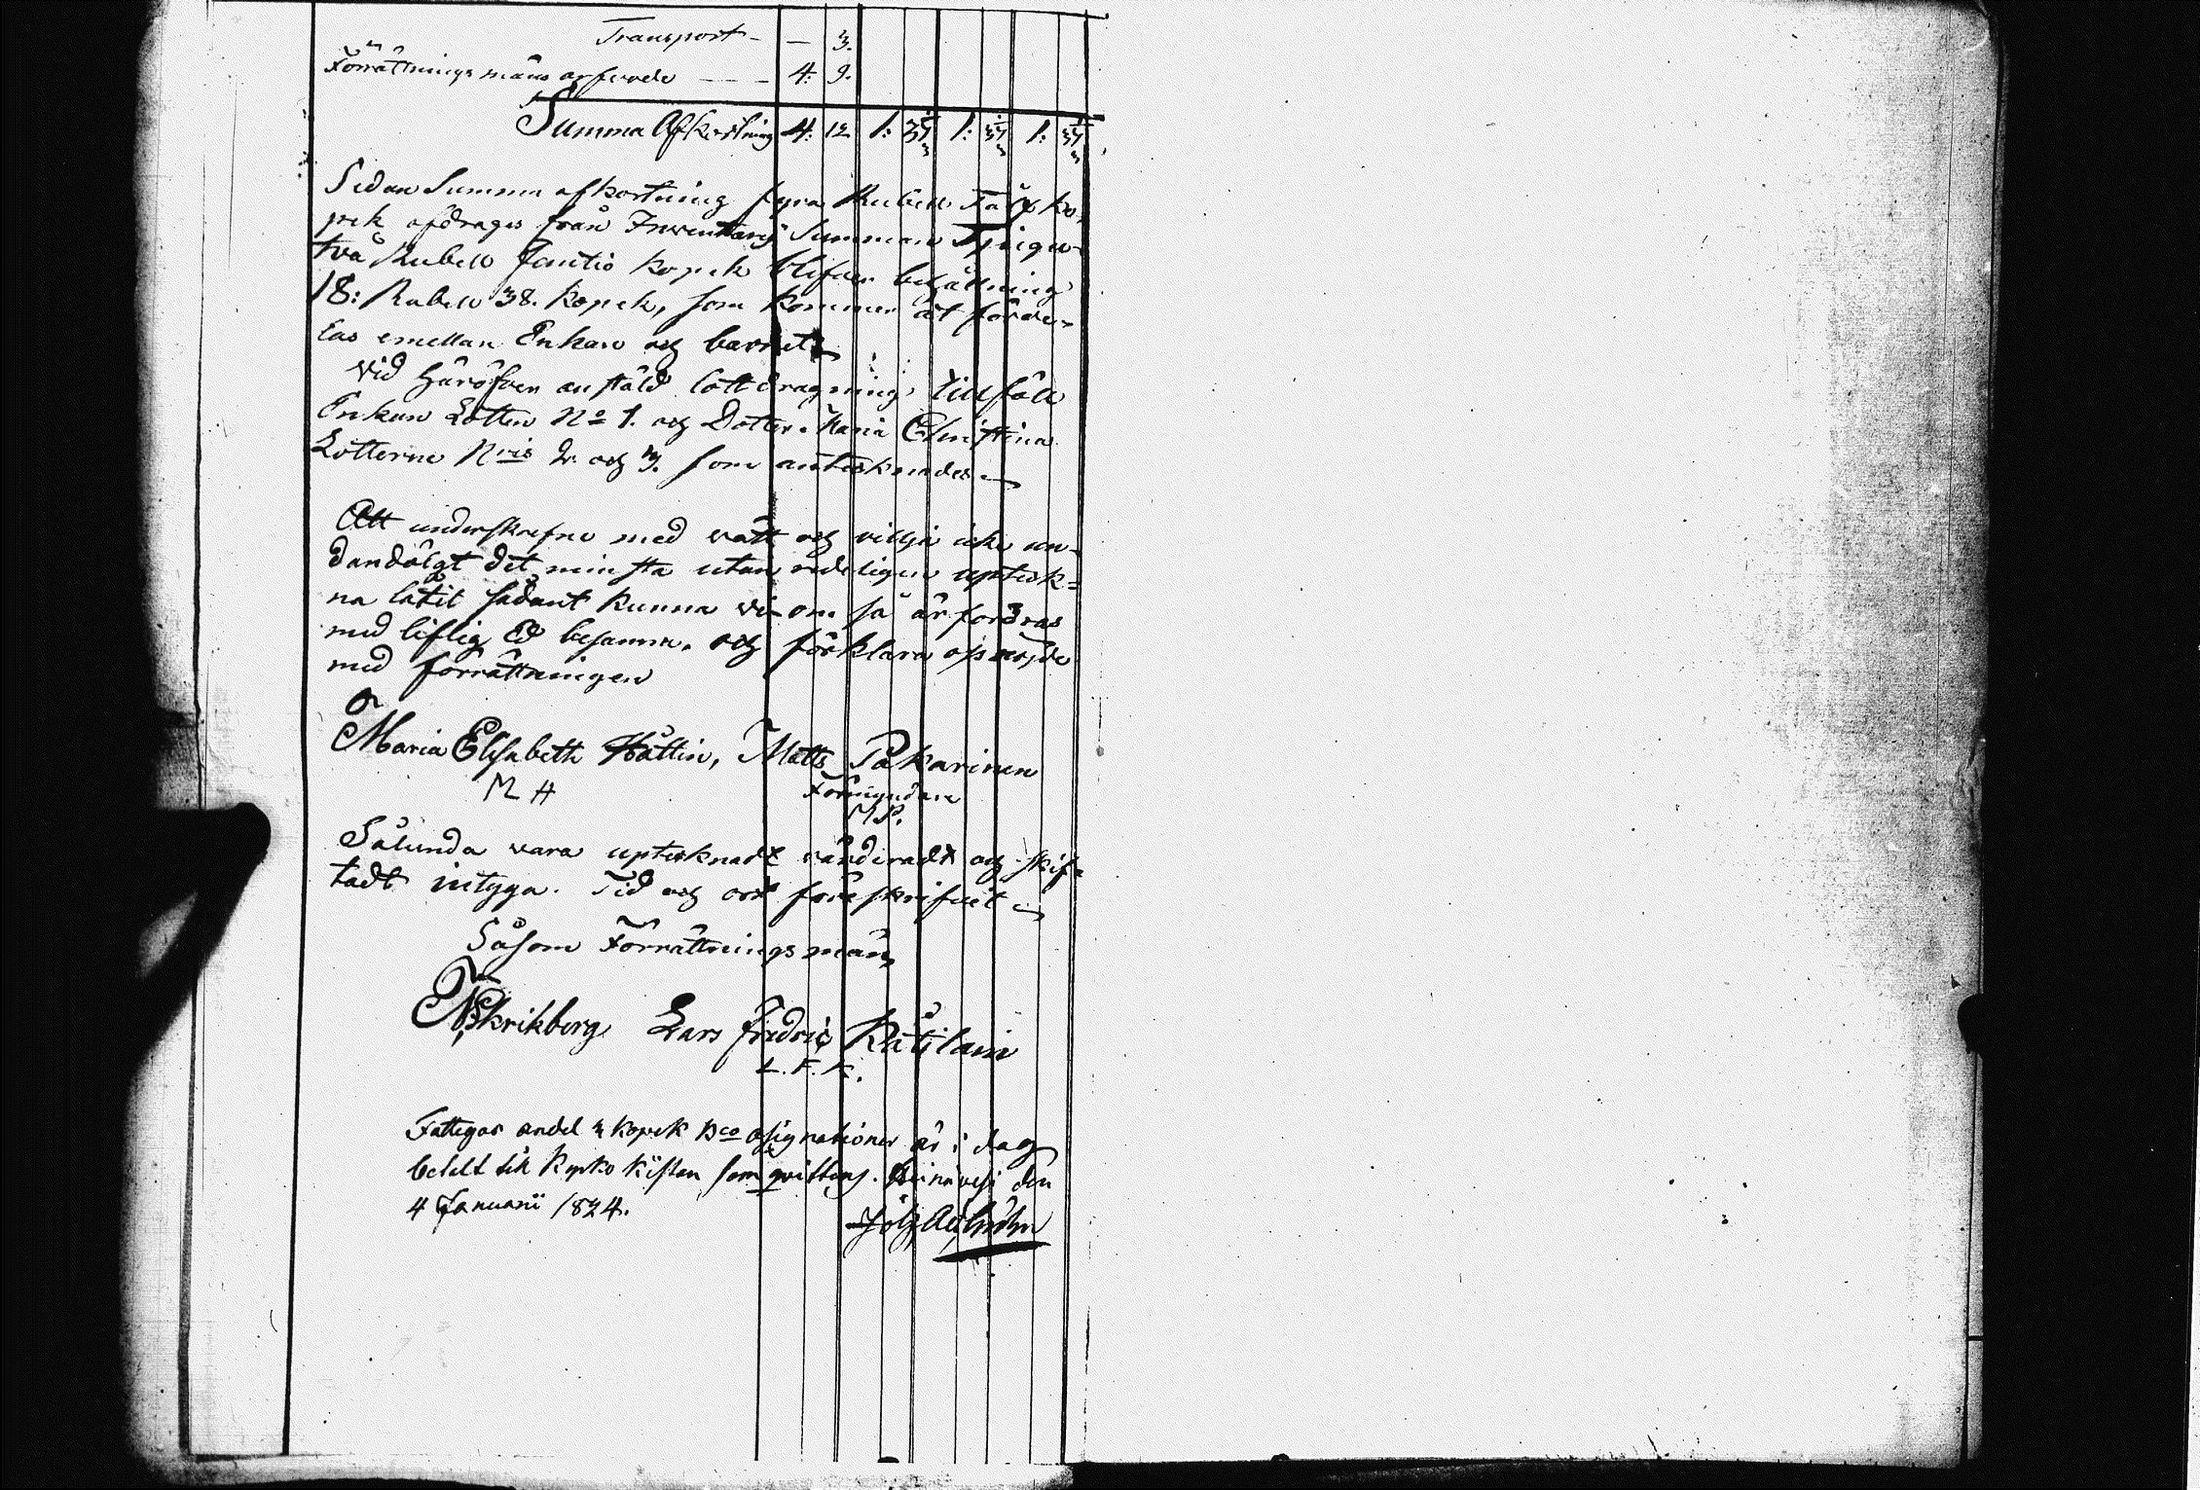 Transport - — 3.
Förrättnings mäns arfvode — — 4: 9.
Summa Afkortning 4: 12 1: 37 1/3 1: 37 1/3 1: 37 1/3
Sedan Summa afkortning fyra Rubell Tolf ko-
pek afdrages från Inventarii Summan Tjugu-
två Rubell femtio kopek blifver behållning
18: Rubell 38. kopek, som kommer at förde-
las emellan Enkan och barnet
Vid häröfver anstäld lottdragning tillföll
Enkan Lotten No 1. och Dotter Maria Christina
Lotterne Nris 2. och 3. som antecknades
Att underskrefne med vett och vilja icke un-
dandölgt det minsta utan redeligen uptek-
na låtit sådant kunna vi om så ärfordras
med liflig Ed besanna. och förklara oss nöjde
med förrättningen
Maria Elisabeth Hättin, Matts Pakarinen
M H Förmyndare
M P.
Sålunda vara upteknadt värderadt och skif-
tadt intyga. Tid och ort föreskrifvit
Såsom Förrättningsmän
Skrikberg Lars Fredric
L. F. K.
Fattigas andel 3 kopek Bco assignationer är i dag
betalt till kyrko kistan som qvitteras. den
4 Januarii 1824.